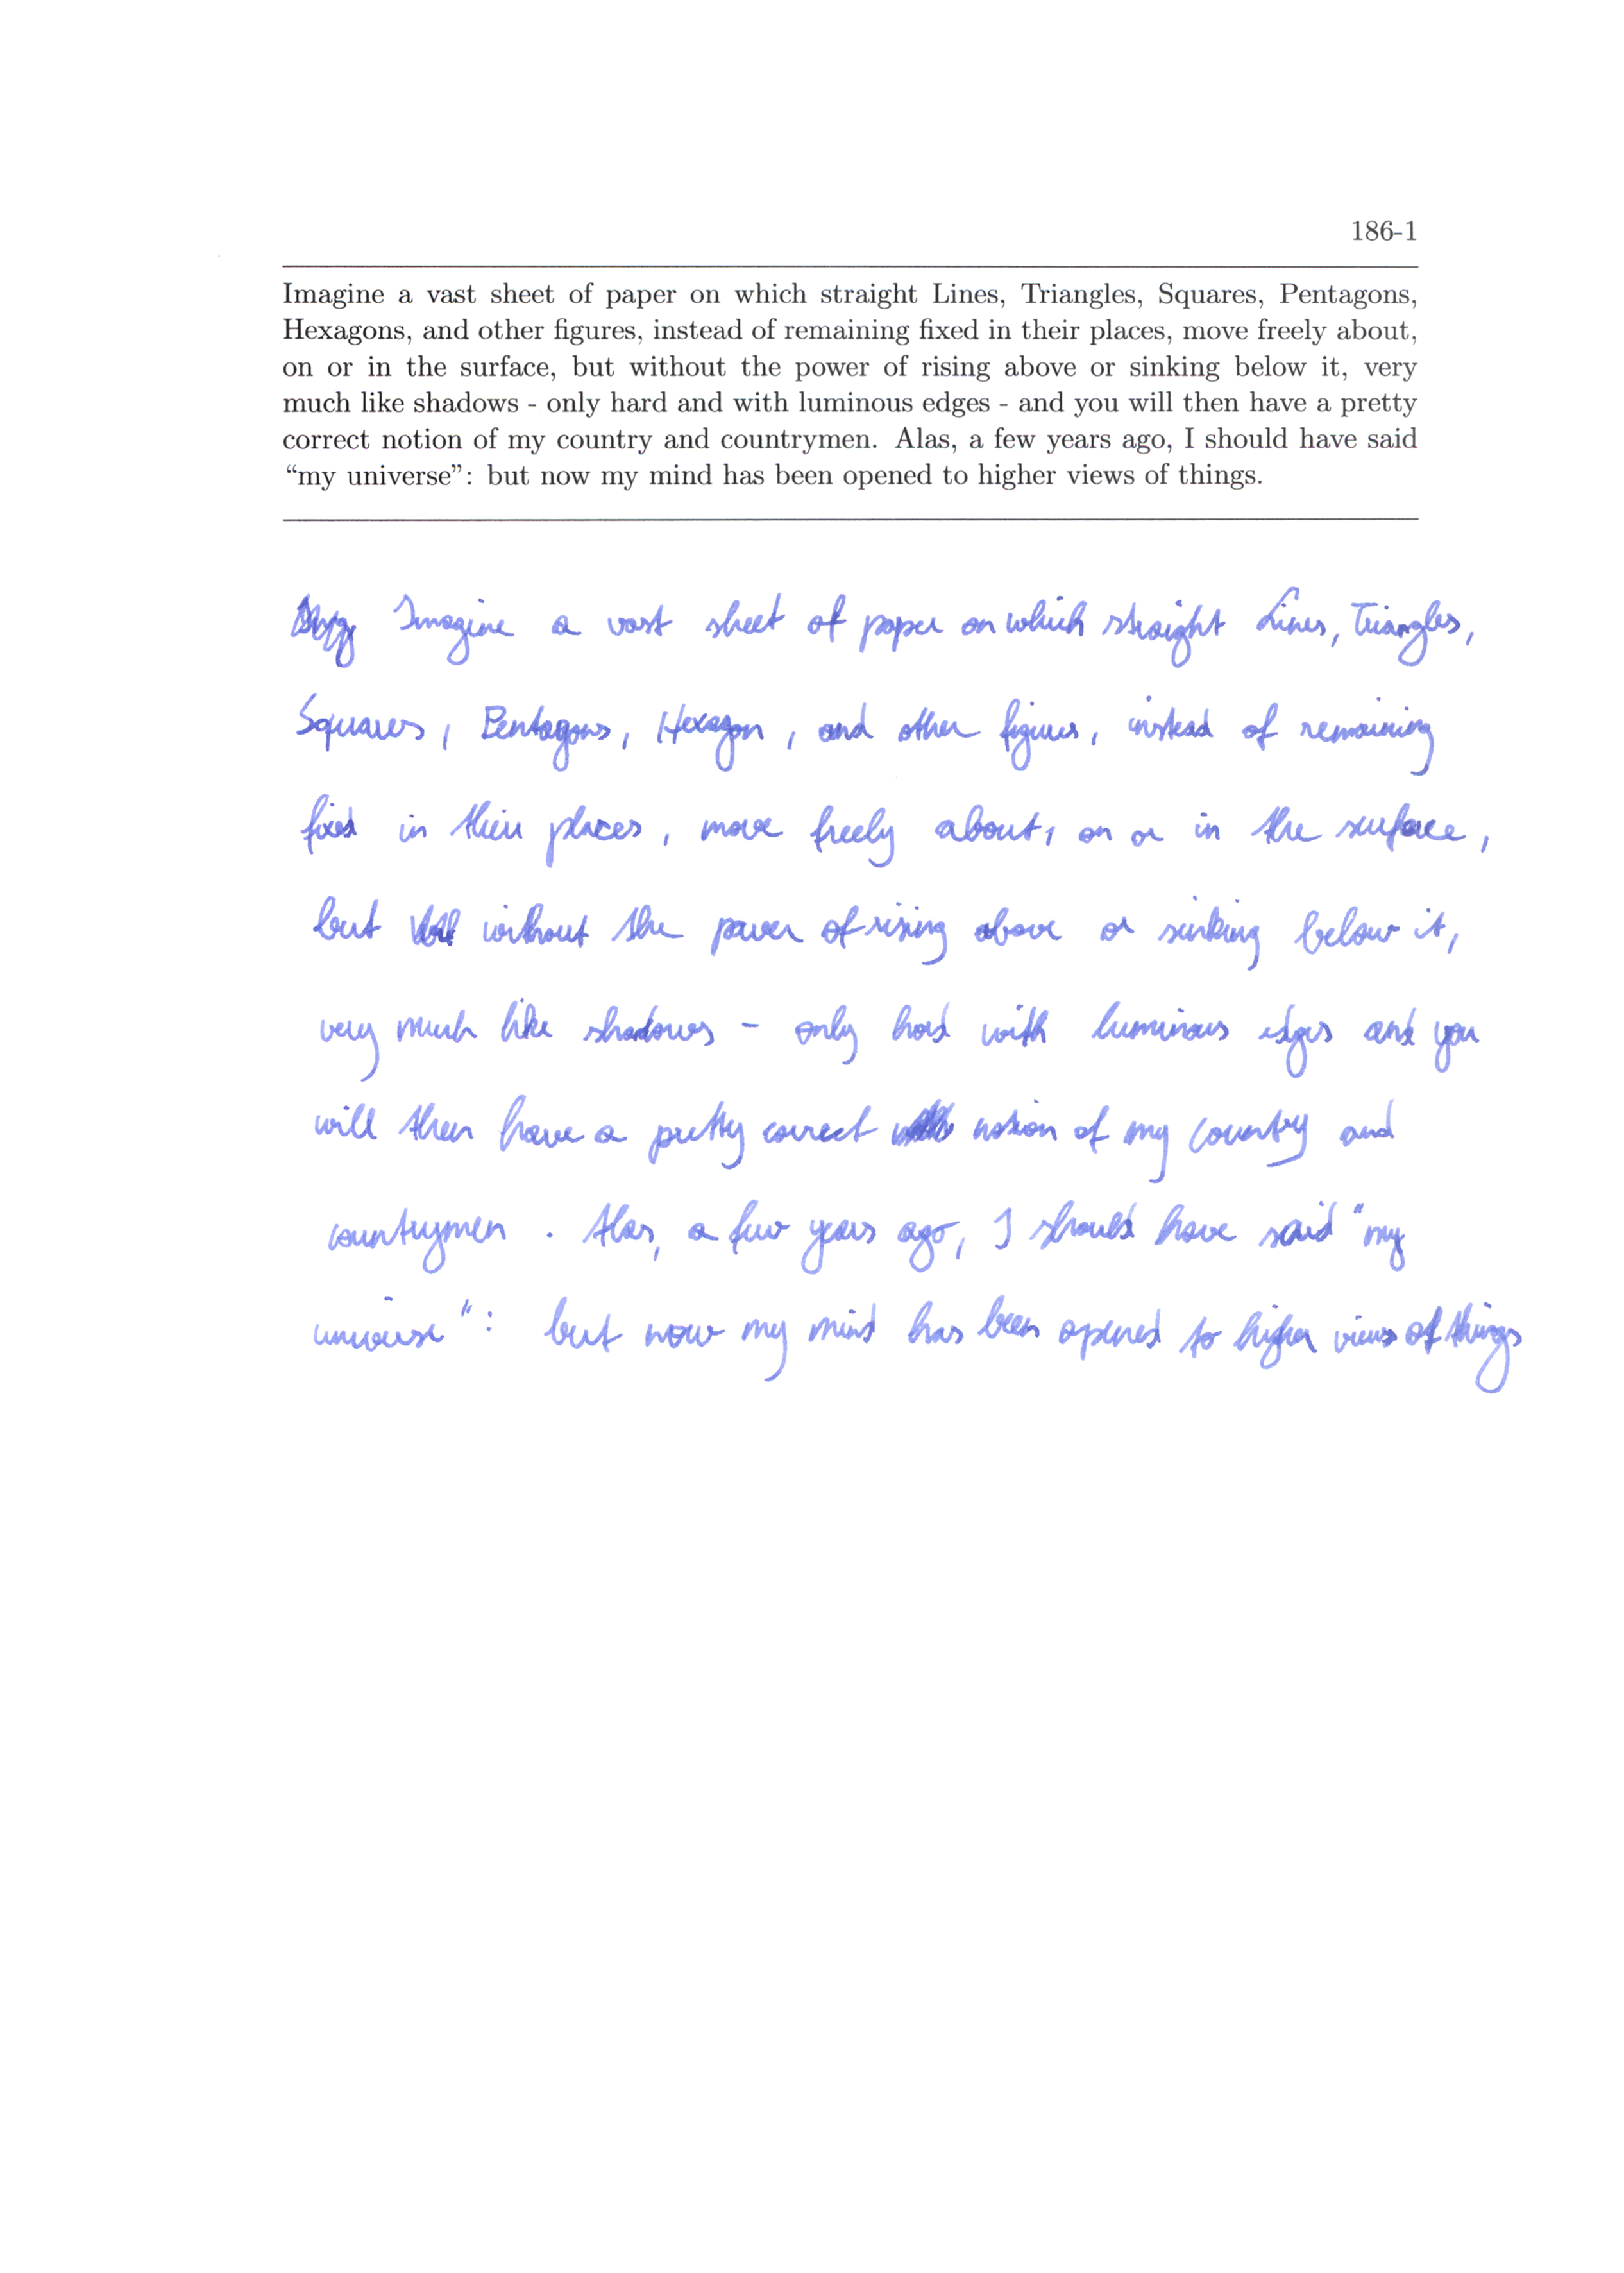 186-1
Imagine a vast sheet of paper on which straight Lines, Triangles, Squares, Pentagons,
Hexagons, and other figures, instead of remaining fixed in their places, move freely about,
on or in the surface, but without the power of rising above or sinking below it, very
much like shadows - only hard and with luminous edges - and you will then have a pretty
correct notion of my country and countrymen. Alas, a few years ago, I should have said
“my universe”: but now my mind has been opened to higher views of things.
Imagine a vast sheet of paper on which straight Lines, Triangles,
Squares, Pentagons, Hexagon, and other figures, instead of remaining
fixed in their places, move freely about, on or in the surface,
but without the power of rising above or sinking below it,
very much like shadows - only hard with luminous edges and you
will then have a pretty correct notion of my country and
countrymen. Alas, a few years ago, I should have said "my
universe": but now my mind has been opened to higher views of things